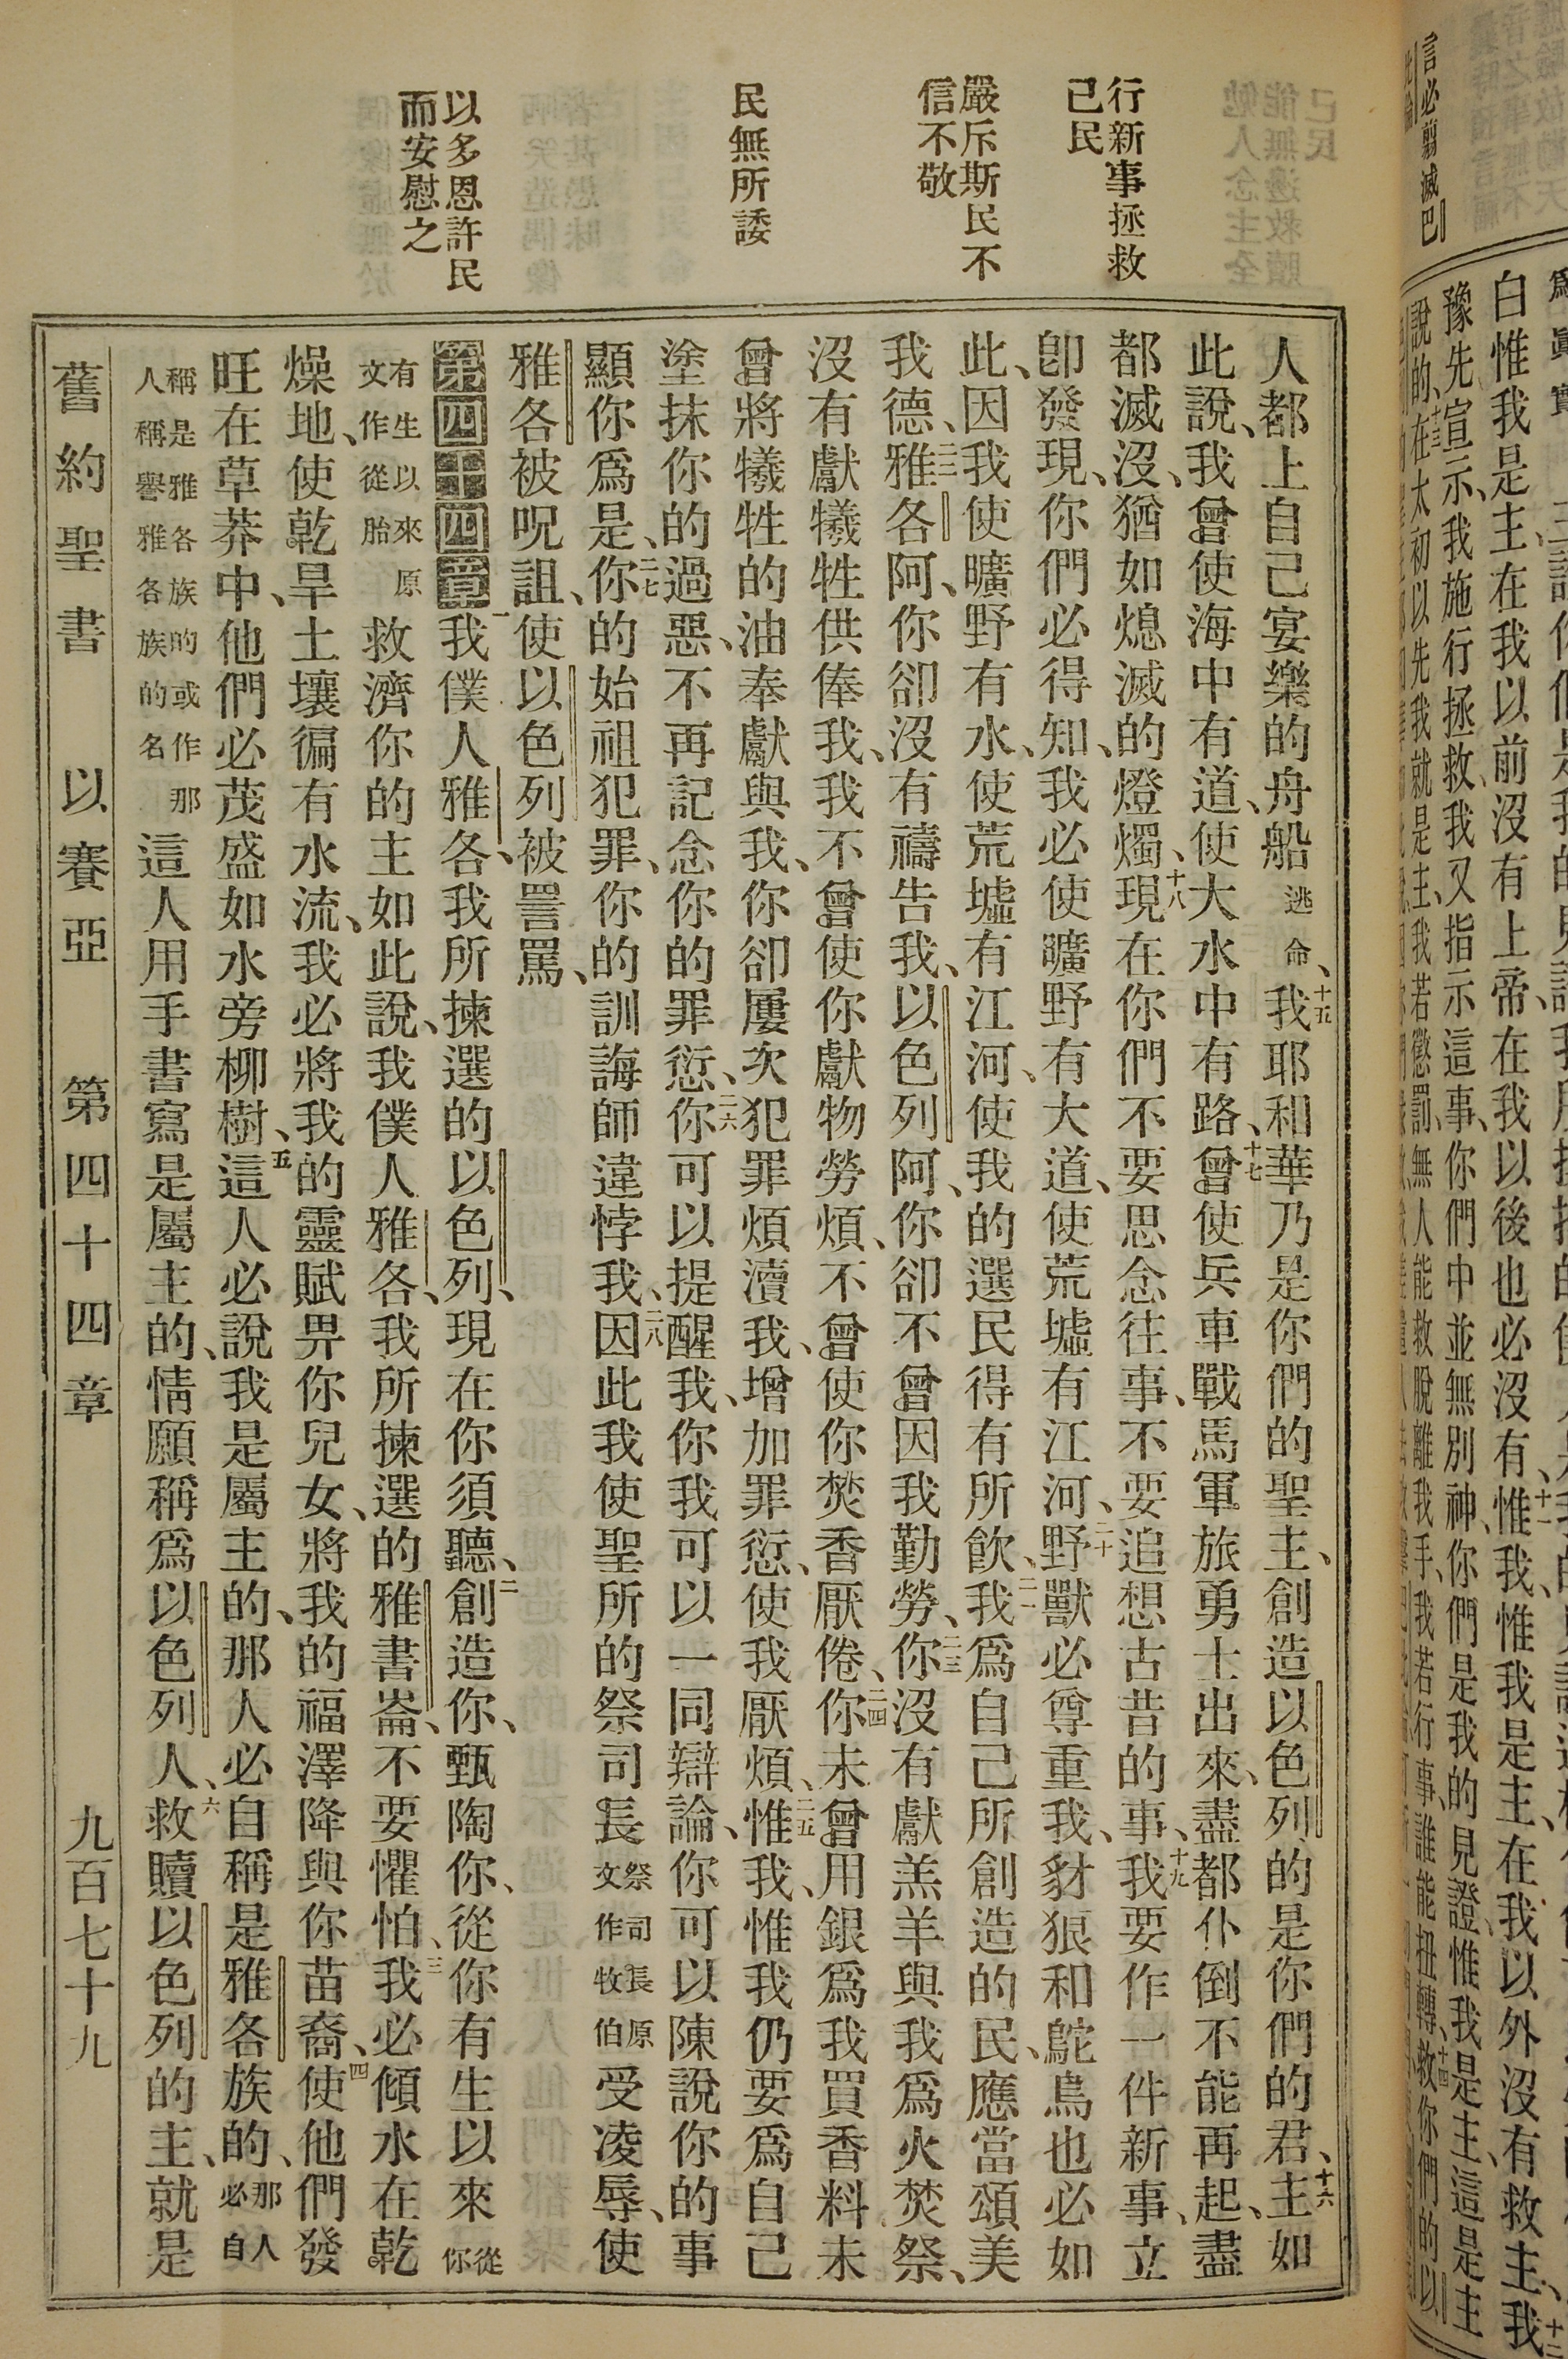 言必翦滅巴
白惟我是主、在我以前沒有上帝、在我以後也必沒有、十一惟我、惟我是主、在我以外沒有救主、十二我
豫先宣示、我施行拯救、我又指示這事、你們中並無別神、你們是我的見證、惟我是主、這是主
說的、十三在太初以先我就是主、我若懲罰、無人能救脫離我手、我若行事、誰能扭轉、十四救你們的以
行新事拯救
己民
嚴斥斯民不
信不敬
民無所諉
以多恩許民
而安慰之
人都上自己宴樂的舟船逃命、十五我耶和華乃是你們的聖主、創造以色列的是你們的君、十六主如
此說、我曾使海中有道、使大水中有路、十七曾使兵車戰馬軍旅勇士出來、盡都仆倒不能再起、盡
都滅沒、猶如熄滅的燈燭、十八現在你們不要思念往事、不要追想古昔的事、十九我要作一件新事、立
卽發現、你們必得知、我必使曠野有大道、使荒墟有江河、二十野獸必尊重我、豺狼和鴕鳥也必如
此、因我使曠野有水、使荒墟有江河、使我的選民得有所飲、二一我爲自己所創造的民、應當頌美
我德、二二雅各阿、你卻沒有禱告我、以色列阿、你卻不曾因我勤勞、二三你沒有獻羔羊與我爲火焚祭、
沒有獻犧牲供俸我、我不曾使你獻物勞煩、不曾使你焚香厭倦、二四你未曾用銀爲我買香料未
曾將犧牲的油奉獻與我、你卻屢次犯罪煩瀆我、增加罪愆、使我厭煩、二五惟我、惟我仍要爲自己
塗抹你的過惡、不再記念你的罪愆、二六你可以提醒我、你我可以一同辯論、你可以陳說你的事
顯你爲是、二七你的始祖犯罪、你的訓誨師違悖我、二八因此我使聖所的祭司長祭司長原文作牧伯受凌辱、使
雅各被呪詛、使以色列被詈罵、
第四十四章一我僕人雅各、我所揀選的以色列、現在你須聽、二創造你、甄陶你、從你有生以來從你
有生以來原文作從胎救濟你的主如此說、我僕人雅各、我所揀選的雅書崙、不要懼怕、三我必傾水在乾
燥地、使乾旱土壤徧有水流、我必將我的靈賦畀你兒女、將我的福澤降與你苗裔、四使他們發
旺在草莽中、他們必茂盛如水旁柳樹、五這人必說我是屬主的、那人必自稱是雅各族的、那人必自
稱是雅各族的或作那人稱譽雅各族的名這人用手書寫是屬主的、情願稱爲以色列人、六救贖以色列的主、就是
舊約聖書 以賽亞 第四十四章 九百七十九